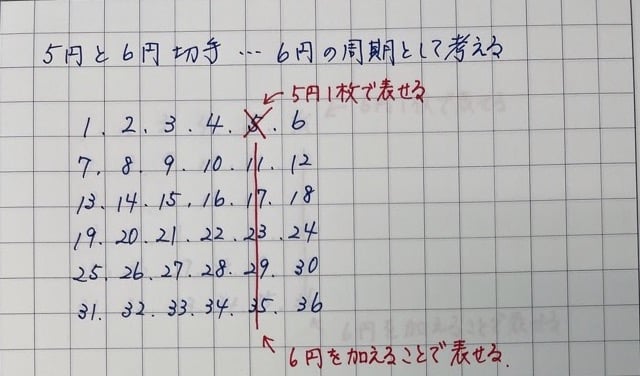 5円と6円切手 … 6円の周期として考える
← 5円1枚で表せる
1. 2. 3. 4. 5. 6
7. 8. 9. 10. 11. 12
13. 14. 15. 16. 17. 18
19. 20. 21. 22. 23. 24
25. 26. 27. 28. 29. 30
31. 32. 33. 34. 35. 36
6円を加えることで表せる.